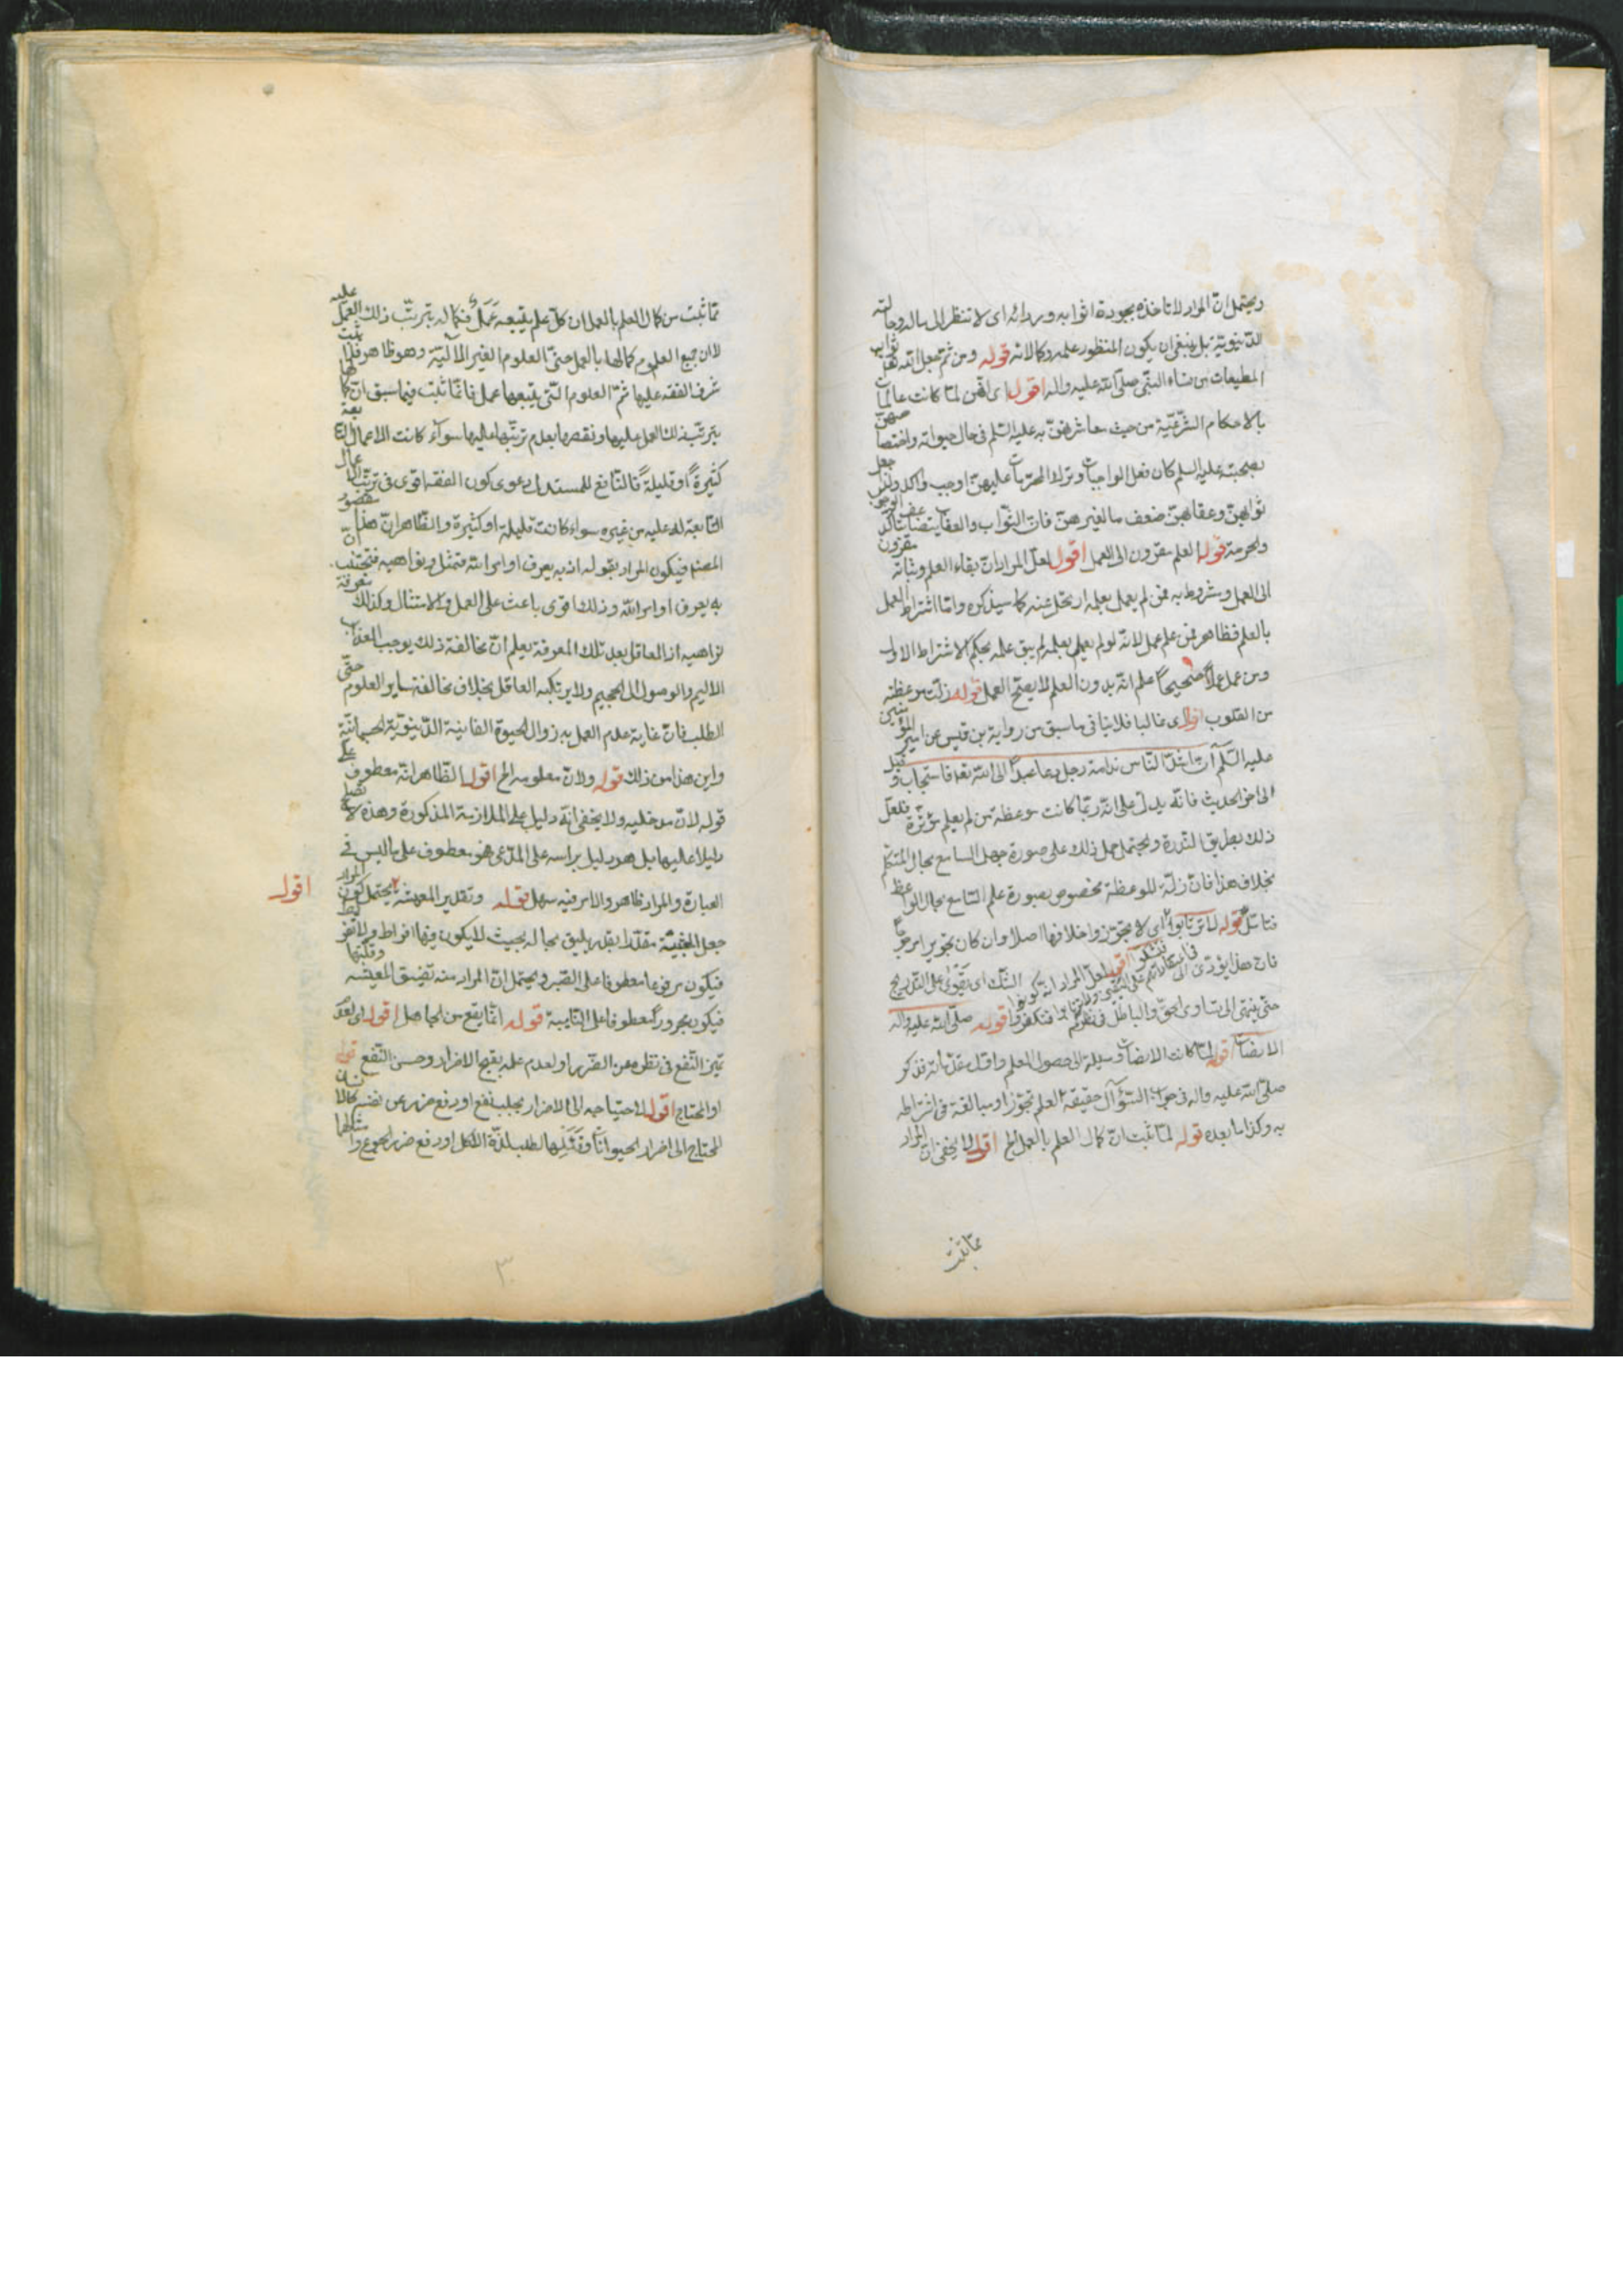 ويحتمل ان المراد لا تاخذه بجودة اثوابه وردائه اى لا تنظر الى ماله وحالته
الدنيوية بل ينبغى ان يكون المنظور علمه وكمالاته قوله ومن ثم جعل الله ثواب
المطيعات من نساء النبى صلى الله عليه واله اقول اى لهن لما كانت عالمات
بالاحكام الشرعية من حيث معاشرتهن به عليه السلم فى حال حيوته واختصاصهن
بصحبته عليه السلم كان فعل الواجبات وترك المحرمات عليهن اوجب واكد ولذا جعل
ثوابهن وعقابهن ضعف ما لغيرهن فان الثواب والعقاب يتضاعف بتاكد الوجوب
والحرمة قوله العلم مقرون الى العمل اقول لعل المراد ان بقاء العلم وثباته مقرون
الى العمل ومشروط به فمن لم يعمل بعلمه ارتحل عنه كما سيذكره واما اشتراط العمل
بالعلم فظاهر فمن علم عمل لانه لو لم يعمل بعلمه لم يبق علمه بحكم الاشتراط الاول
ومن عمل عملا صحيحا علم انه بدون العلم لا يصح العمل قوله زلت موعظته
من القلوب اقول اى غالبا فلا ينافى ما سبق من رواية بن قيس عن امير المؤمنين
عليه السلم ان اشد الناس ندامة رجل دعا عبدا الى الله تعالى فاستجاب وقبل
الى اخر الحديث فانه يدل على انه ربما كانت موعظة من لم يعلم مؤثرة فلعل
ذلك بطريق الندرة ويحتمل حمل ذلك على صورة جهل السامع بحال المتكلم
بخلاف هذا فان زلة الموعظة مخصوص بصورة علم السامع بحال الواعظ
فتامل قوله لا ترتابوا اى لا تجوزوا خلافها اصلا وان كان تجويزا مرجوحا
فان هذا يؤدى الى فتشكوا اقول لعل المراد انه كونوا الشك اى يقوى على التدريج
حتى ينتهى الى تساوى الحق والباطل فى نظركم فتكفروا قوله صلى الله عليه واله
الانصات اقول لما كانت الانصات وسيلة الى حصول العلم واول مقدماته فذكر
صلى الله عليه واله فى جواب السؤال حقيقة العلم تجوزا ومبالغة فى اشتراطه
به وكذا ما بعده قوله لما ثبت ان كمال العلم بالعمل الخ اقول لا يخفى ان المراد
مما ثبت
مما ثبت من كمال العلم بالعمل ان كل علم يتبعه عمل فكماله بترتب ذلك العمل عليه
لا ان جميع العلوم كمالها بالعمل حتى العلوم الغير الالية وهو ظاهر فلا يثبت
شرف الفقه عليها ثم العلوم التى يتبعها عمل فانما ثبت فيما سبق ان كمالها
بترتب ذلك العمل عليها ونقصها بعدم ترتبها عليها سوآء كانت الاعمال التابعة
كثيرة او قليلة فالنافع للمستدل دعوى كون الفقه اقوى فى ترتب الاعمال
التابعة له عليه من غيره سواء كانت قليلة او كثيرة والظاهر ان هذا مقصود
المصنف فيكون المراد بقوله اذ به يعرف اوامر الله فتمتثل ونواهيه فتجتنب ان
به يعرف اوامر الله وذلك اقوى باعث على العمل والامتثال وكذلك معرفة
نواهيه اذ العاقل بعد تلك المعرفة يعلم ان مخالفة ذلك يوجب العذاب
الاليم والوصول الى الجحيم ولا يرتكبه العاقل بخلاف مخالفة ساير العلوم حتى
الطب فان غاية عدم العمل به زوال الحيوة الفانية الدنيوية الجسمانية
واين هذا من ذلك قوله ولان معلومه الخ اقول الظاهر انه معطوف على
قوله لان مدخليه ولا يخفى انه دليل على الملازمة المذكورة وهذه لا تصلح
دليلا عليها بل هو دليل براسه على المدعى فهو معطوف على ما ليس فى
العبارة والمراد ظاهر والامر فيه سهل قوله وتقدير المعيشة يحتمل كون المراد
اقول
جعل المعيشة مقدرا بقدر يليق بحاله بحيث لا يكون فيها افراط ولا تفريط
فيكون مرفوعا معطوفا على الصبر ويحتمل ان المراد منه تضيق المعيشه وقلتها
فيكون مجرورا معطوفا على النايبة قوله انما يقع من الجاهل اقول اى لعدم
تميز النفع فى نظره عن الضرر او لعدم علمه بقبح الاضرار وحسن النفع قوله
او المحتاج اقول لاحتياجه الى الاضرار بجلب نفع او دفع ضرر عن نفسه كالانسان
المحتاج الى اضرار الحيوانات وقتلها لطلب لذة الاكل او دفع ضرر الجوع وامثالها
٣٠